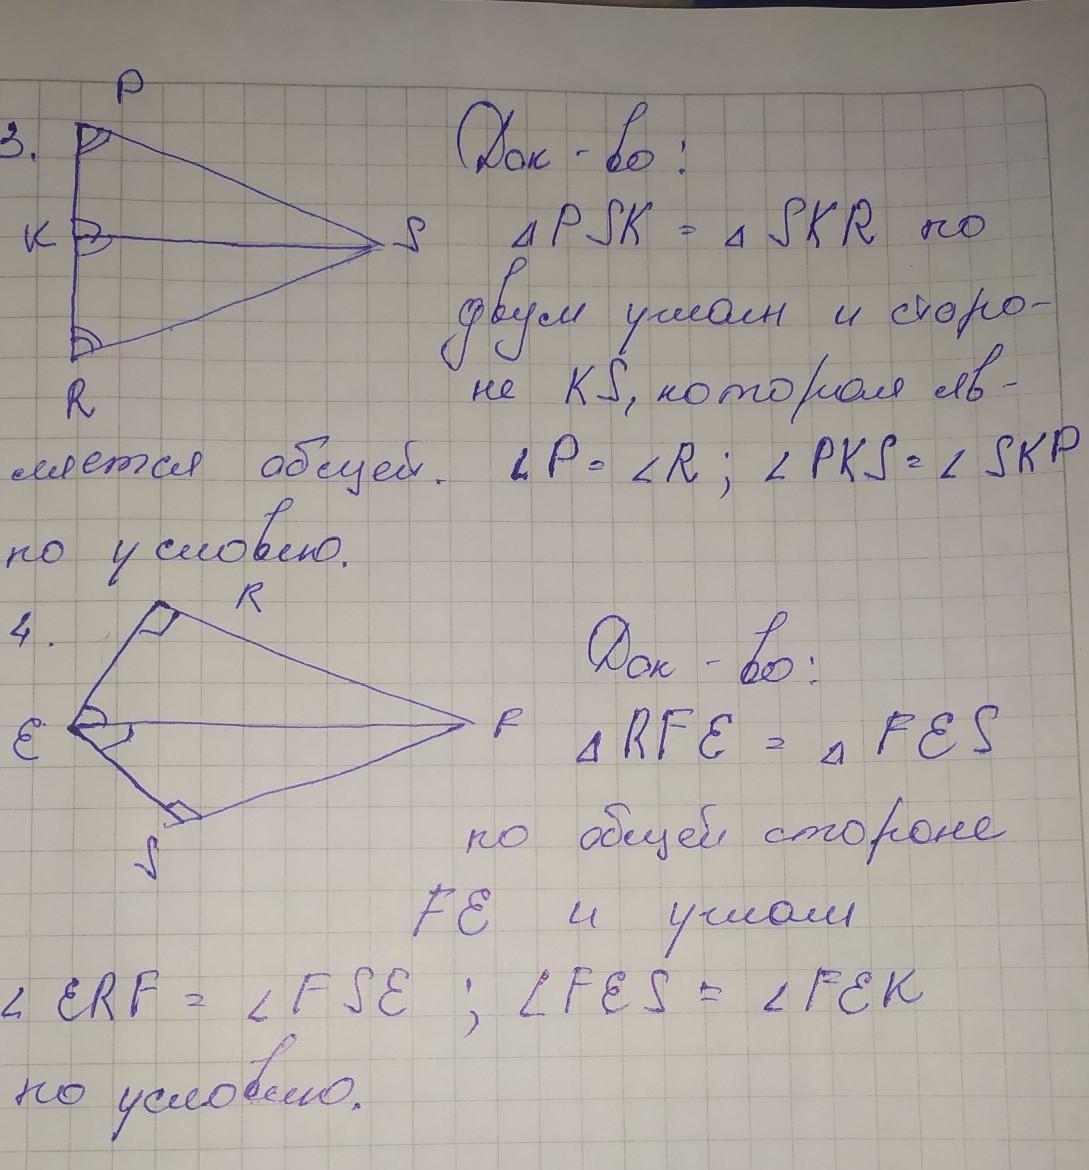 P
3.
Док-во:
K
S
△PSK = △SKR по
двум углам и сторо-
не KS, которая яв-
R
ляется общей. ∠P = ∠R; ∠PKS = ∠SKP
по условию.
R
4.
Док-во:
E
F
△RFE = △FES
по общей стороне
S
FE и углам
∠ERF = ∠FSE; ∠FES = ∠FEK
по условию.